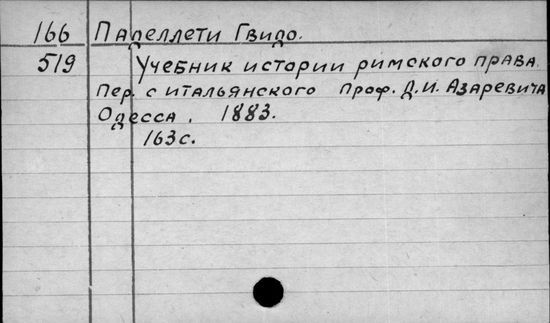 166 Паделлети Гвидо.
519 Учебник истории римского права.
Пер. с итальянского Проф. Д.И. Азаревича
Одесса, 1883.
163с.